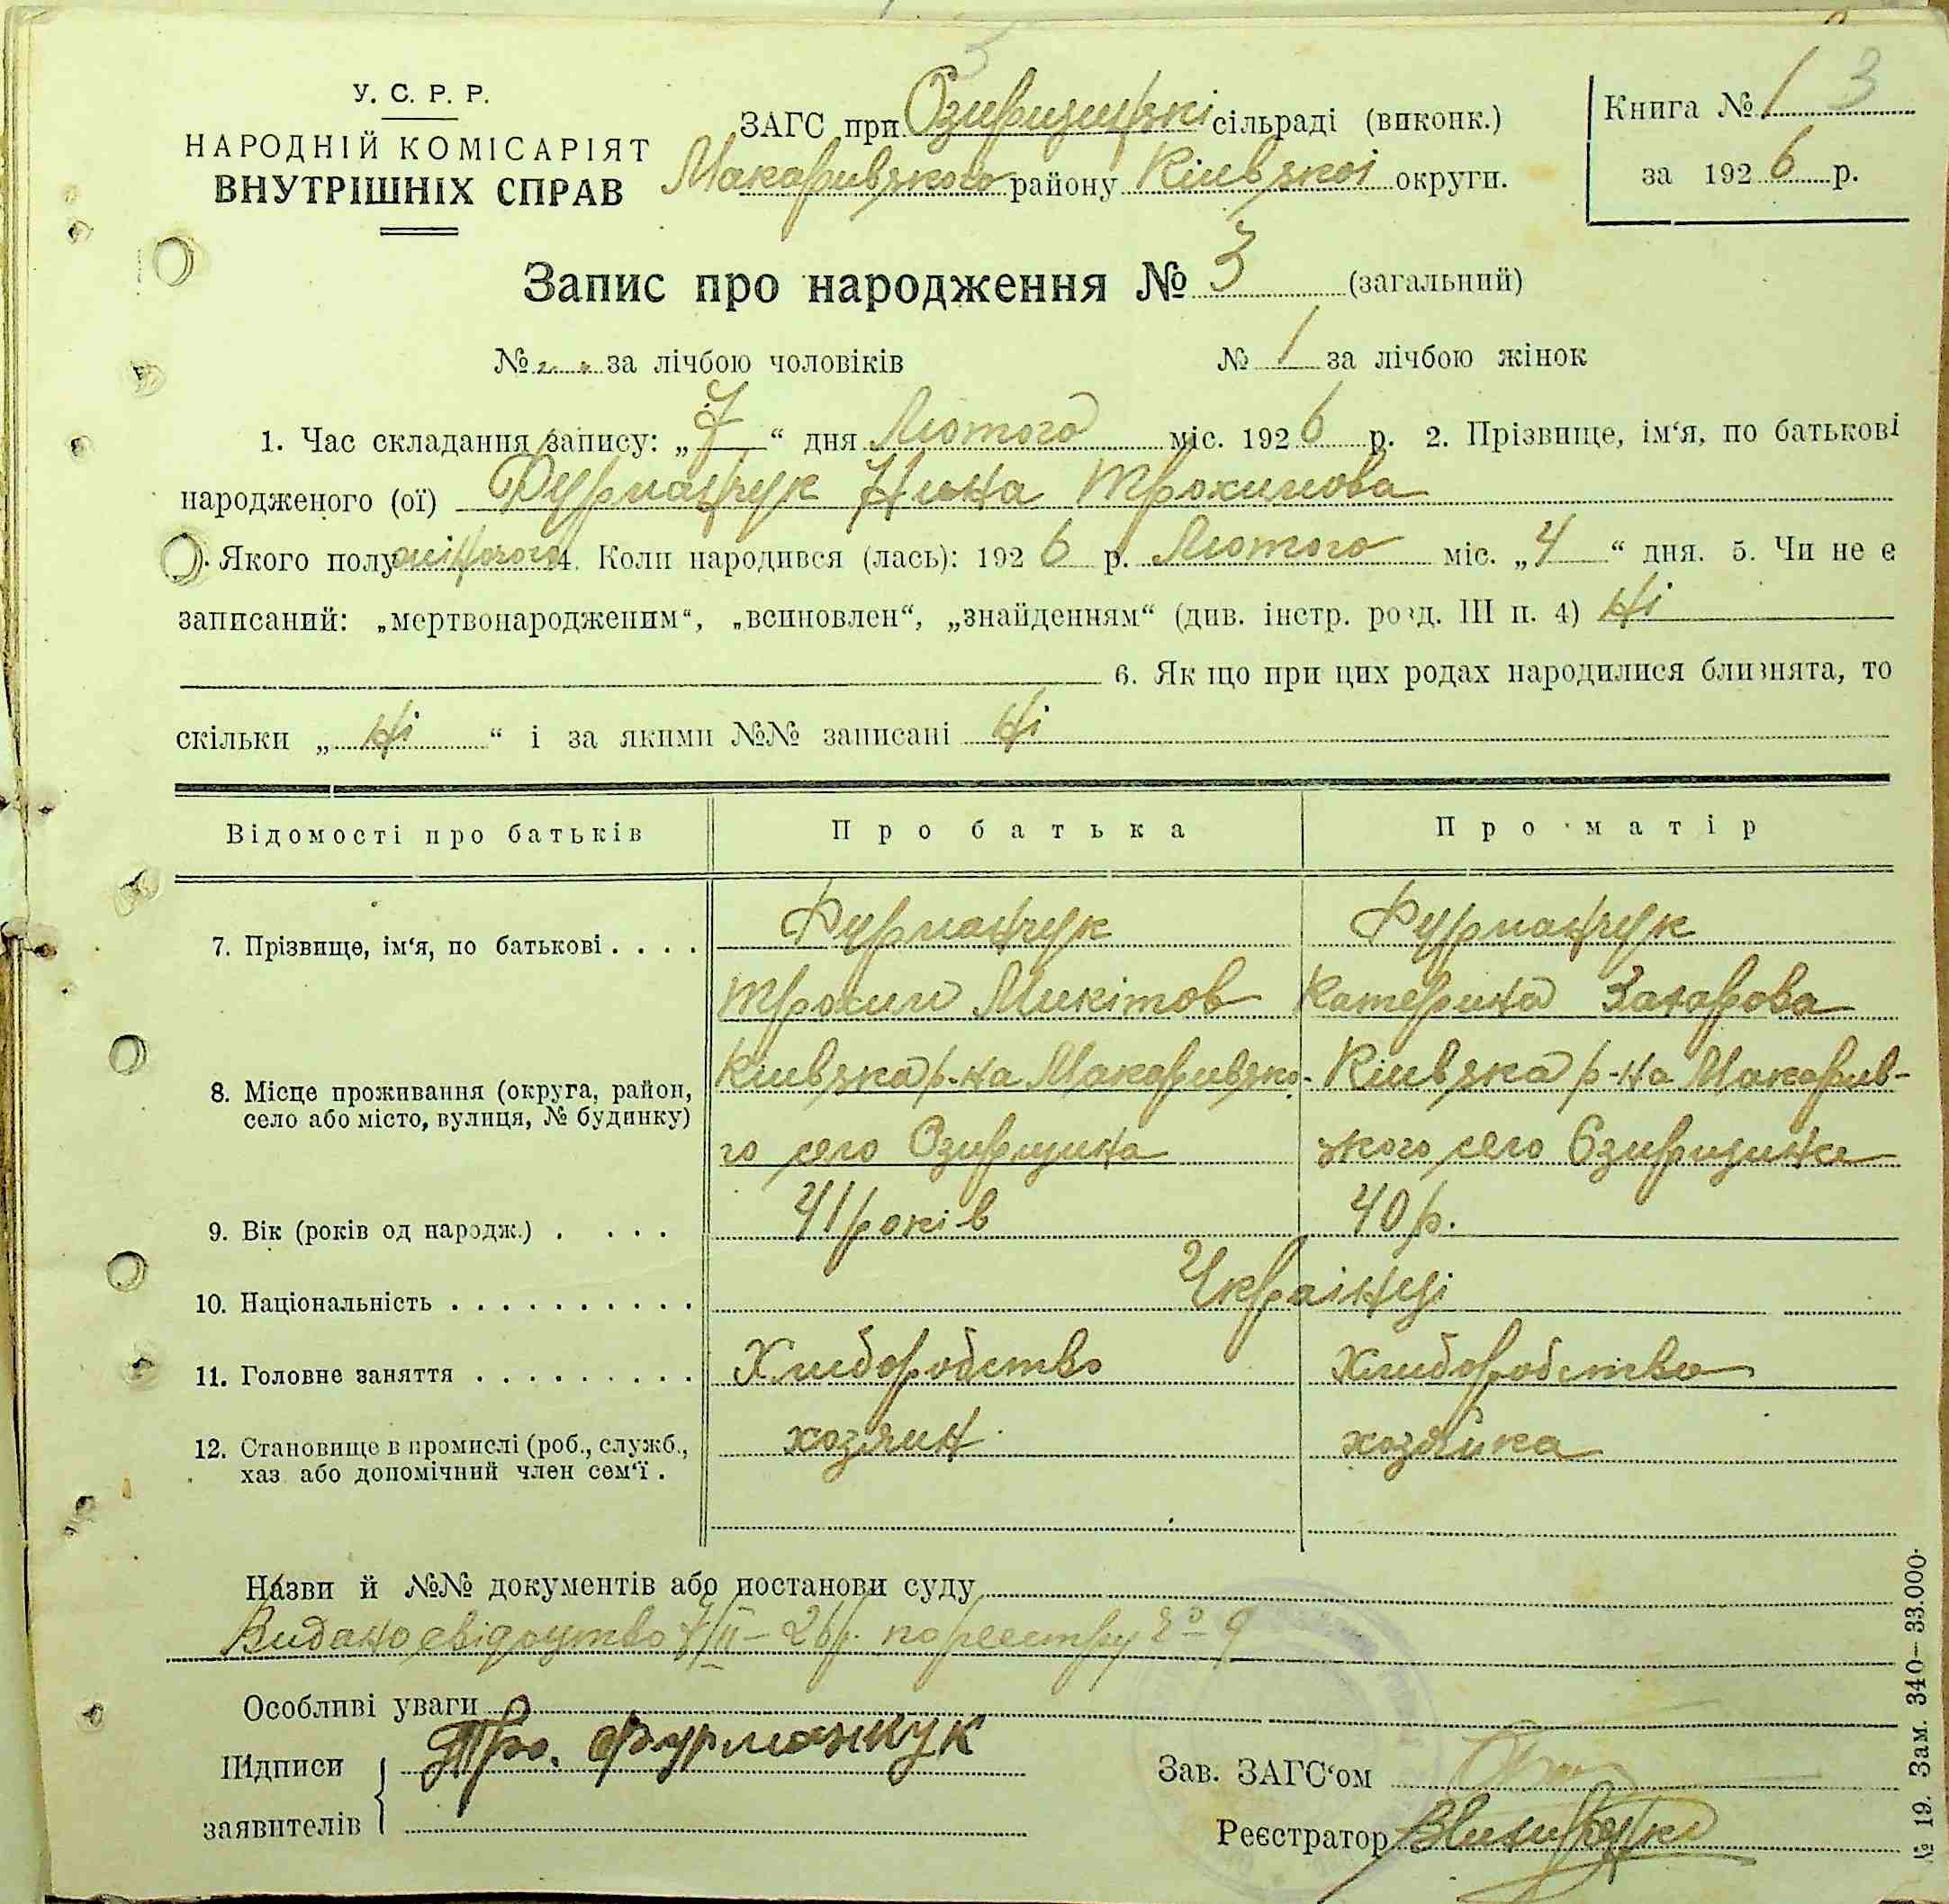 У. С. Р. Р.
НАРОДНІЙ КОМІСАРІЯТ
ВНУТРІШНІХ СПРАВ
ЗАГС при Озирщицькі сільраді (виконк.)
Макаривського району Київської округи.
Книга № 1 3
за 1926 р.
Запис про народження № 3 (загальний)
№ " " за лічбою чоловіків № 1 за лічбою жінок
1. Час складання запису: „7“ дня Лютого міс. 1926 р. 2. Прізвище, ім‘я, по батькові
народженого (ої) Фурманчук Нина Трохимова
Якого полу жіночого 4. Коли народився (лась): 1926 р. Лютого міс. „4“ дня. 5. Чи не є
записаний: „мертвонародженим“, „всиновлен“, „знайденням“ (див. інстр. розд. III п. 4) Ні
6. Як що при цих родах народилися близнята, то
скільки „ Ні “ і за якими №№ записані Ні
Відомості про батьків Про батька Про матір
7. Прізвище, ім‘я, по батькові . . . . Фурманчук Фурманчук
Трохим Микітов Катерина Захарова
8. Місце проживання (округа, район, село або місто, вулиця, № будинку) Київська р-на Макаривско- Київська р-на Макарив-
го село Озирщина ского село Озирщина
9. Вік (років од народж.) . . . . 41 років 40 р.
10. Національність . . . . . . . . . . Українці
11. Головне заняття . . . . . . . . . Хлиборобство Хлиборобство
12. Становище в промислі (роб., служб., хаз або допомічний член сем‘ї . хозяин хозяйка
Назви й №№ документів або постанови суду
Видано свідоцтво 7/II-26р. по реестру № 9
Особливі уваги
Підписи Тро. Фурманчук
заявителів
Зав. ЗАГС‘ом
Реєстратор
№ 19. Зам. 340—33.000.